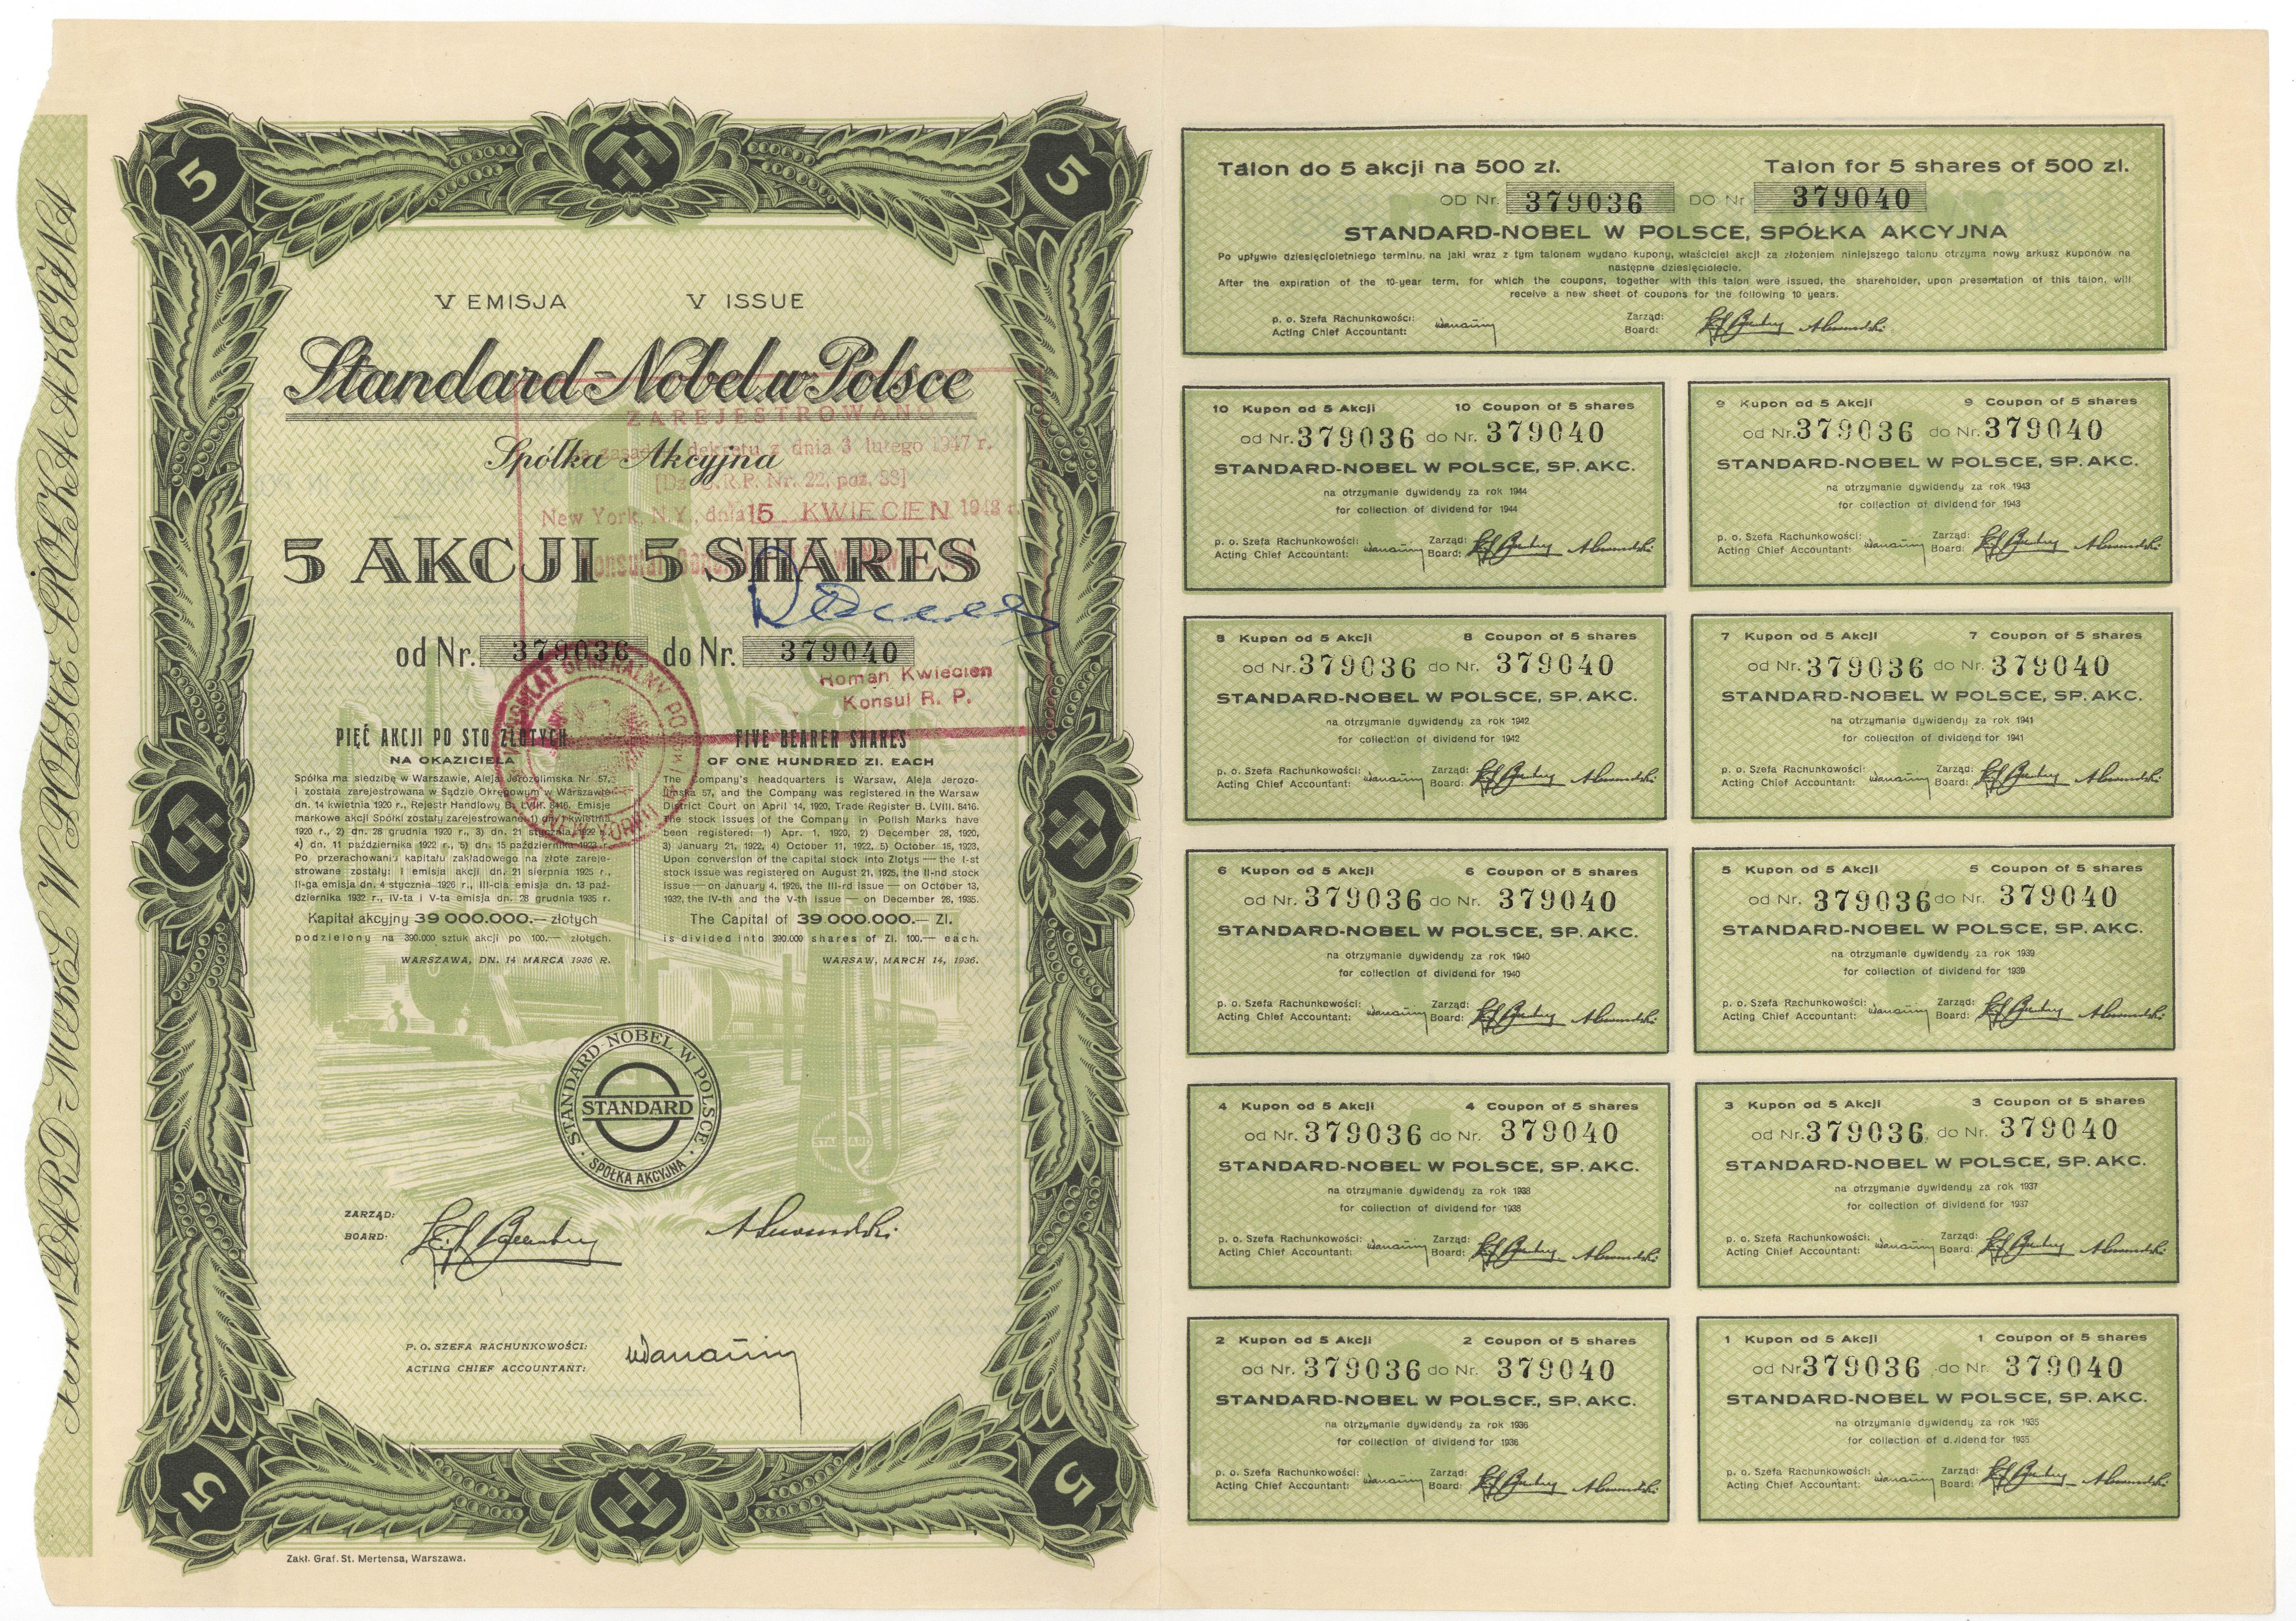 STANDARD-NOBEL W POLSCE SPÓŁKA AKCYJNA
5
5
V EMISJA V ISSUE
Standard-Nobel w Polsce
ZAREJESTROWANO
dekretu z dnia 3 lutego 1947 r.
Spółka Akcyjna
R.P. Nr. 22, poz. 88]
New York, N.Y., dnia 15 KWIECIEN 1948 r.
5 AKCJI 5 SHARES
od Nr. 379036 do Nr. 379040
Roman Kwiecien
Konsul R. P.
PIĘĆ AKCJI PO STO ZŁOTYCH
NA OKAZICIELA
Spółka ma siedzibę w Warszawie, Aleja Jerozolimska Nr 57,
i została zarejestrowana w Sądzie Okręgowym w Warszawie
dn. 14 kwietnia 1920 r., Rejestr Handlowy B. LVIII. 8416. Emisje
markowe akcji Spółki zostały zarejestrowane: 1) dn. 1 kwietnia
1920 r., 2) dn. 28 grudnia 1920 r., 3) dn. 21 stycznia 1922 r.
4) dn. 11 października 1922 r., 5) dn. 15 października 1923 r.
Po przerachowaniu kapitału zakładowego na złote zareje-
strowane zostały: I emisja akcji dn. 21 sierpnia 1925 r.,
II-ga emisja dn. 4 stycznia 1926 r., III-cia emisja dn. 13 paź-
dziernika 1932 r., IV-ta i V-ta emisja dn. 28 grudnia 1935 r.
Kapitał akcyjny 39 000.000.— złotych
podzielony na 390.000 sztuk akcji po 100.— złotych.
WARSZAWA, DN. 14 MARCA 1936 R.
FIVE BEARER SHARES
OF ONE HUNDRED Zl. EACH
The Company's headquarters is Warsaw, Aleja Jerozo-
limska 57, and the Company was registered in the Warsaw
District Court on April 14, 1920, Trade Register B. LVIII. 8416.
The stock issues of the Company in Polish Marks have
been registered: 1) Apr. 1, 1920, 2) December 28, 1920,
3) January 21, 1922, 4) October 11, 1922, 5) October 15, 1923.
Upon conversion of the capital stock into Zlotys — the I-st
stock issue was registered on August 21, 1925, the II-nd stock
issue — on January 4, 1926, the III-rd issue — on October 13,
1932, the IV-th and the V-th issue — on December 28, 1935.
The Capital of 39 000.000.— Zl.
is divided into 390.000 shares of Zl. 100.— each.
WARSAW, MARCH 14, 1936.
KONSULAT GENERALNY POLSKI
STANDARD-NOBEL W POLSCE
STANDARD
SPÓŁKA AKCYJNA
STANDARD
ZARZĄD:
BOARD:
P. O. SZEFA RACHUNKOWOŚCI:
ACTING CHIEF ACCOUNTANT:
5
5
Zakł. Graf. St. Mertensa, Warszawa.
Talon do 5 akcji na 500 zł. Talon for 5 shares of 500 zl.
OD Nr. 379036 DO Nr 379040
STANDARD-NOBEL W POLSCE, SPÓŁKA AKCYJNA
Po upływie dziesięcioletniego terminu, na jaki wraz z tym talonem wydano kupony, właściciel akcji za złożeniem niniejszego talonu otrzyma nowy arkusz kuponów na
następne dziesięciolecie.
After the expiration of the 10-year term, for which the coupons, together with this talon were issued, the shareholder, upon presentation of this talon, will
receive a new sheet of coupons for the following 10 years.
p. o. Szefa Rachunkowości: Zarząd:
Acting Chief Accountant: Board:
10 Kupon od 5 Akcji 10 Coupon of 5 shares
od Nr. 379036 do Nr. 379040
STANDARD-NOBEL W POLSCE, SP. AKC.
na otrzymanie dywidendy za rok 1944
for collection of dividend for 1944
p. o. Szefa Rachunkowości: Zarząd:
Acting Chief Accountant: Board:
9 Kupon od 5 Akcji 9 Coupon of 5 shares
od Nr. 379036 do Nr. 379040
STANDARD-NOBEL W POLSCE, SP. AKC.
na otrzymanie dywidendy za rok 1943
for collection of dividend for 1943
p. o. Szefa Rachunkowości: Zarząd:
Acting Chief Accountant: Board:
8 Kupon od 5 Akcji 8 Coupon of 5 shares
od Nr. 379036 do Nr. 379040
STANDARD-NOBEL W POLSCE, SP. AKC.
na otrzymanie dywidendy za rok 1942
for collection of dividend for 1942
p. o. Szefa Rachunkowości: Zarząd:
Acting Chief Accountant: Board:
7 Kupon od 5 Akcji 7 Coupon of 5 shares
od Nr. 379036 do Nr. 379040
STANDARD-NOBEL W POLSCE, SP. AKC.
na otrzymanie dywidendy za rok 1941
for collection of dividend for 1941
p. o. Szefa Rachunkowości: Zarząd:
Acting Chief Accountant: Board:
6 Kupon od 5 Akcji 6 Coupon of 5 shares
od Nr. 379036 do Nr. 379040
STANDARD-NOBEL W POLSCE, SP. AKC.
na otrzymanie dywidendy za rok 1940
for collection of dividend for 1940
p. o. Szefa Rachunkowości: Zarząd:
Acting Chief Accountant: Board:
5 Kupon od 5 Akcji 5 Coupon of 5 shares
od Nr. 379036 do Nr. 379040
STANDARD-NOBEL W POLSCE, SP. AKC.
na otrzymanie dywidendy za rok 1939
for collection of dividend for 1939
p. o. Szefa Rachunkowości: Zarząd:
Acting Chief Accountant: Board:
4 Kupon od 5 Akcji 4 Coupon of 5 shares
od Nr. 379036 do Nr. 379040
STANDARD-NOBEL W POLSCE, SP. AKC.
na otrzymanie dywidendy za rok 1938
for collection of dividend for 1938
p. o. Szefa Rachunkowości: Zarząd:
Acting Chief Accountant: Board:
3 Kupon od 5 Akcji 3 Coupon of 5 shares
od Nr. 379036 do Nr. 379040
STANDARD-NOBEL W POLSCE, SP. AKC.
na otrzymanie dywidendy za rok 1937
for collection of dividend for 1937
p. o. Szefa Rachunkowości: Zarząd:
Acting Chief Accountant: Board:
2 Kupon od 5 Akcji 2 Coupon of 5 shares
od Nr. 379036 do Nr. 379040
STANDARD-NOBEL W POLSCE, SP. AKC.
na otrzymanie dywidendy za rok 1936
for collection of dividend for 1936
p. o. Szefa Rachunkowości: Zarząd:
Acting Chief Accountant: Board:
1 Kupon od 5 Akcji 1 Coupon of 5 shares
od Nr 379036 do Nr. 379040
STANDARD-NOBEL W POLSCE, SP. AKC.
na otrzymanie dywidendy za rok 1935
for collection of dividend for 1935
p. o. Szefa Rachunkowości: Zarząd:
Acting Chief Accountant: Board: